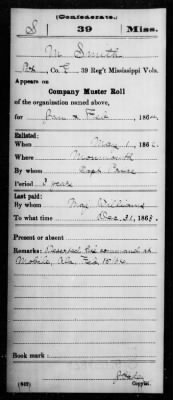 (Confederate.)
S 39 Miss.
M Smith
Co. E, 39 Reg't Mississippi Vols.
Appears on
Company Muster Roll
of the organization named above,
for Jan & Feb, 1864.
Enlisted:
When May 1, 1862.
Where Monmouth
By whom Capt.
Period 3 years
Last paid:
By whom Maj Williams
To what time Dec 31, 1863.
Present or absent
Remarks: Deserted his command at
Mobile, Ala, Feb 15 /64
Book mark:
(642) Copyist.